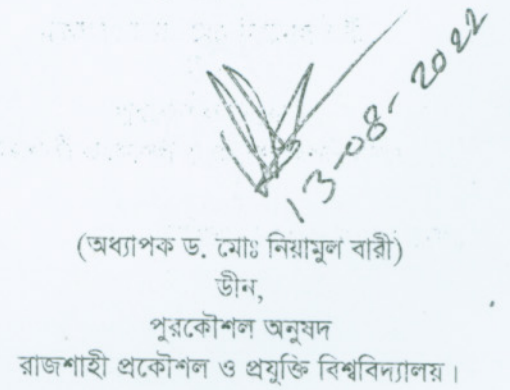 13-08-2022
(অধ্যাপক ড. মোঃ নিয়ামুল বারী)
ডীন,
পুরকৌশল অনুষদ
রাজশাহী প্রকৌশল ও প্রযুক্তি বিশ্ববিদ্যালয়।